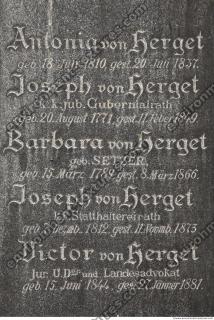 Antonia von Herget
geb. 18. Juni 1810, gest. 20. Juli 1837.
Joseph von Herget
k.k. jub. Gubernialrath
geb. 20. August 1771, gest. 11. Feber 1849.
Barbara von Herget
geb. SETZER,
geb. 15. März 1789 gest. 8. März 1866.
Joseph von Herget
k.k. Statthaltereirath
geb. 1812, gest. 11. Novemb. 1873
Victor von Herget
Jur. U. Dus und Landesadvokat
geb. 15. Juni 1844, gest. 27. Jänner 1881.